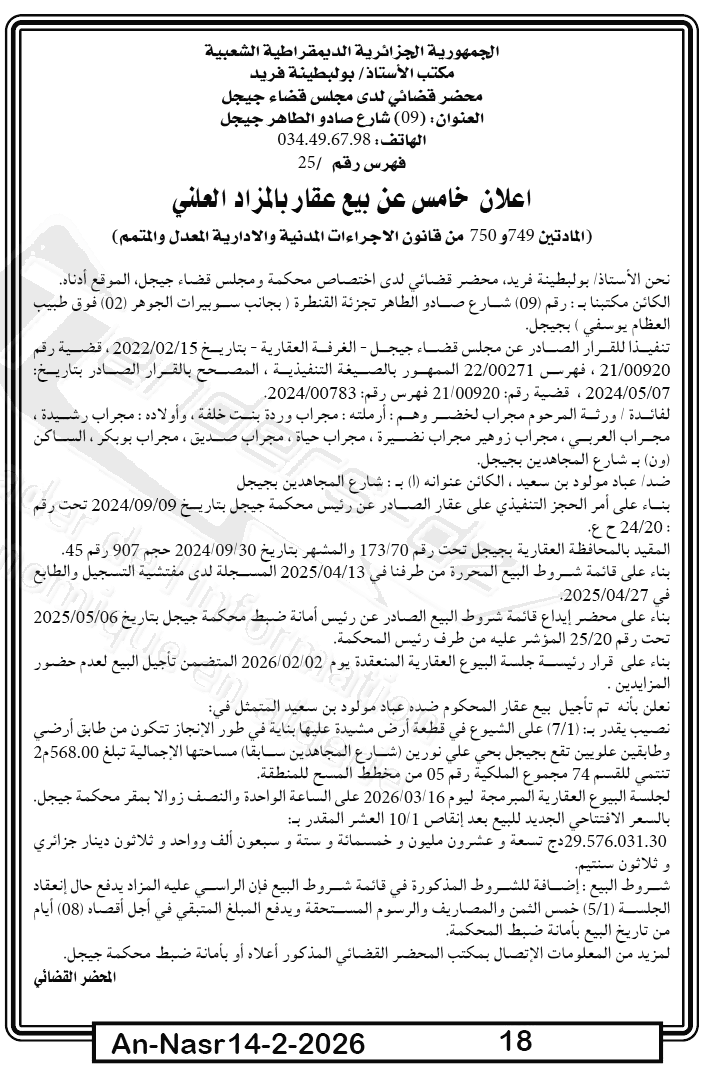 الجمهورية الجزائرية الديمقراطية الشعبية
مكتب الأستاذ/ بولبطينة فريد
محضر قضائي لدى مجلس قضاء جيجل
العنوان: (09) شارع صادو الطاهر جيجل
الهاتف: 034.49.67.98
فهرس رقم /25
اعلان خامس عن بيع عقار بالمزاد العلني
(المادتين 749و 750 من قانون الاجراءات المدنية والادارية المعدل والمتمم)
نحن الأستاذ/ بولبطينة فريد، محضر قضائي لدى اختصاص محكمة ومجلس قضاء جيجل، الموقع أدناه.
الكائن مكتبنا بـ : رقم (09) شارع صادو الطاهر تجزئة القنطرة ( بجانب سوبيرات الجوهر (02) فوق طبيب
العظام يوسفي ) بجيجل.
تنفيذا للقرار الصادر عن مجلس قضاء جيجل - الغرفة العقارية - بتاريخ 2022/02/15 ، قضية رقم
21/00920 ، فهرس 22/00271 الممهور بالصيغة التنفيذية ، المصحح بالقرار الصادر بتاريخ:
2024/05/07 ، قضية رقم: 21/00920 فهرس رقم: 2024/00783.
لفائدة / ورثة المرحوم مجراب لخضر وهم : أرملته : مجراب وردة بنت خلفة ، وأولاده : مجراب رشيدة ،
مجراب العربي ، مجراب زوهير مجراب نضيرة ، مجراب حياة ، مجراب صديق ، مجراب بوبكر ، الساكن
(ون) بـ شارع المجاهدين بجيجل.
ضد/ عباد مولود بن سعيد ، الكائن عنوانه (ا) بـ : شارع المجاهدين بجيجل
بناء على أمر الحجز التنفيذي على عقار الصادر عن رئيس محكمة جيجل بتاريخ 2024/09/09 تحت رقم
: 24/20 ح ع.
المقيد بالمحافظة العقارية بجيجل تحت رقم 173/70 والمشهر بتاريخ 2024/09/30 حجم 907 رقم 45.
بناء على قائمة شروط البيع المحررة من طرفنا في 2025/04/13 المسجلة لدى مفتشية التسجيل والطابع
في 2025/04/27.
بناء على محضر إيداع قائمة شروط البيع الصادر عن رئيس أمانة ضبط محكمة جيجل بتاريخ 2025/05/06
تحت رقم 25/20 المؤشر عليه من طرف رئيس المحكمة.
بناء على قرار رئيسة جلسة البيوع العقارية المنعقدة يوم 2026/02/02 المتضمن تأجيل البيع لعدم حضور
المزايدين .
نعلن بأنه تم تأجيل بيع عقار المحكوم ضده عباد مولود بن سعيد المتمثل في:
نصيب يقدر بـ: (7/1) على الشيوع في قطعة أرض مشيدة عليها بناية في طور الإنجاز تتكون من طابق أرضي
وطابقين علويين تقع بجيجل بحي علي نورين (شارع المجاهدين سابقا) مساحتها الإجمالية تبلغ 568.00م2
تنتمي للقسم 74 مجموع الملكية رقم 05 من مخطط المسح للمنطقة.
لجلسة البيوع العقارية المبرمجة ليوم 2026/03/16 على الساعة الواحدة والنصف زوالا بمقر محكمة جيجل.
بالسعر الافتتاحي الجديد للبيع بعد إنقاص 10/1 العشر المقدر بـ:
29.576.031.30دج تسعة و عشرون مليون و خمسمائة و ستة و سبعون ألف وواحد و ثلاثون دينار جزائري
و ثلاثون سنتيم.
شروط البيع : إضافة للشروط المذكورة في قائمة شروط البيع فإن الراسي عليه المزاد يدفع حال إنعقاد
الجلسة (5/1) خمس الثمن والمصاريف والرسوم المستحقة ويدفع المبلغ المتبقي في أجل أقصاه (08) أيام
من تاريخ البيع بأمانة ضبط المحكمة.
لمزيد من المعلومات الإتصال بمكتب المحضر القضائي المذكور أعلاه أو بأمانة ضبط محكمة جيجل.
المحضر القضائي
An-Nasr14-2-2026 18